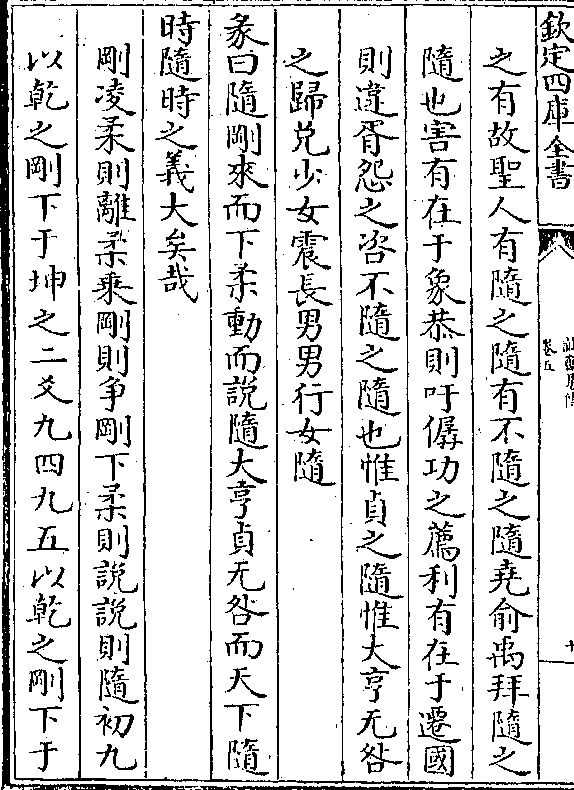 欽定四庫全書
卷五
之有故聖人有隨之隨有不隨之隨堯俞禹拜隨之
隨也害有在于象恭則吁僝功之薦利有在于遷國
則違胥怨之咨不隨之隨也惟貞之隨惟大亨无咎
之歸兑少女震長男男行女隨
彖曰隨剛來而下柔動而説隨大亨貞无咎而天下隨
時隨時之義大矣哉
剛凌柔則離柔乘剛則争剛下柔則説説則隨初九
以乾之剛下于坤之二爻九四九五以乾之剛下于